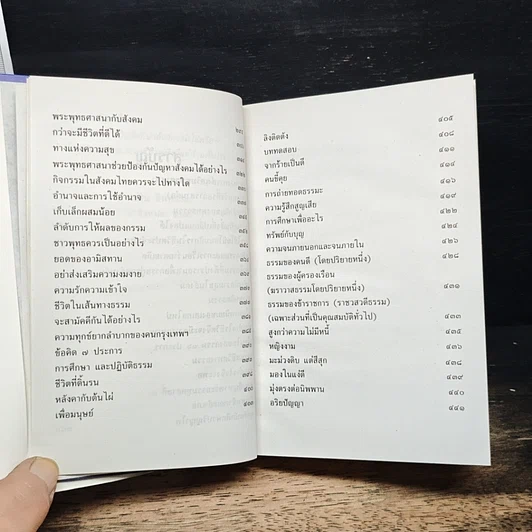 พระพุทธศาสนากับสังคม
กว่าจะมีชีวิตที่ดีได้
ทางแห่งความสุข
พระพุทธศาสนาช่วยป้องกันปัญหาสังคมได้อย่างไร
กิจกรรมในสังคมไทยควรจะไปทางใด
อำนาจและการใช้อำนาจ
เก็บเล็กผสมน้อย
ลำดับการให้ผลของกรรม
ชาวพุทธควรเป็นอย่างไร
ยอดของอามิสทาน
อย่าส่งเสริมความงมงาย
ความรักความเข้าใจ
ชีวิตในเส้นทางธรรม
จะสามัคคีกันได้อย่างไร
ความทุกข์ยากลำบากของคนกรุงเทพฯ
ข้อคิด ๗ ประการ
การศึกษา และปฏิบัติธรรม
ชีวิตที่ดิ้นรน
หลังคากับต้นไผ่
เพื่อมนุษย์
๔๐๕
ลิงติดตัง ๔๐๘
บททดสอบ ๔๑๑
จากร้ายเป็นดี ๔๑๔
คนขี้คุย ๔๑๖
การถ่ายทอดธรรมะ ๔๑๙
ความรู้สึกสูญเสีย ๔๒๒
การศึกษาเพื่ออะไร ๔๒๔
ทรัพย์กับบุญ ๔๒๖
ความจนภายนอกและจนภายใน ๔๒๘
ธรรมของคนดี (โดยปริยายหนึ่ง)
ธรรมของผู้ครองเรือน
(ฆราวาสธรรมโดยปริยายหนึ่ง) ๔๓๑
ธรรมของข้าราชการ (ราชวสดีธรรม)
(เฉพาะส่วนที่เป็นคุณสมบัติทั่วไป) ๔๓๓
สูงกว่าความไม่มีหนี้ ๔๓๕
หญิงงาม ๔๓๖
มะม่วงดิบ แต่สีสุก ๔๓๘
มองในแง่ดี ๔๓๙
มุ่งตรงต่อนิพพาน ๔๔๐
อริยปัญญา ๔๔๑